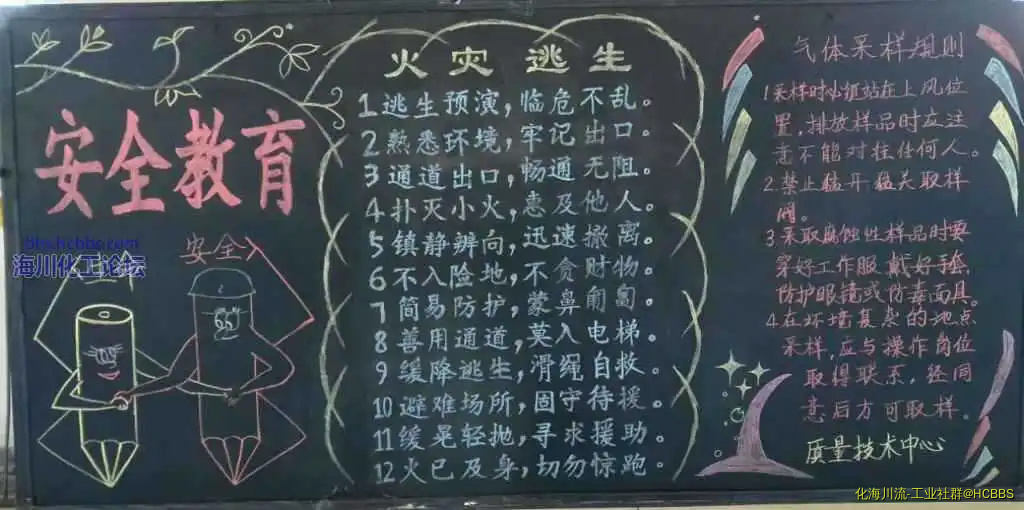 安全教育
bbs.hcbbs.com
海川化工论坛
安全
火灾逃生
1逃生预演，临危不乱。
2熟悉环境，牢记出口。
3通道出口，畅通无阻。
4扑灭小火，惠及他人。
5镇静辨向，迅速撤离。
6不入险地，不贪财物。
7简易防护，蒙鼻匍匐。
8善用通道，莫入电梯。
9缓降逃生，滑绳自救。
10避难场所，固守待援。
11缓晃轻抛，寻求援助。
12火已及身，切勿惊跑。
气体采样规则
1采样时必须站在上风位
置，排放样品时应注
意不能对柱任何人。
2禁止猛开猛关取样
阀。
3采取腐蚀性样品时要
穿好工作服，戴好手套，
防护眼镜或防毒面具。
4在环境复杂的地点
采样，应与操作岗位
取得联系，经同
意后方可取样。
质量技术中心
化海川流-工业社群@HCBBS